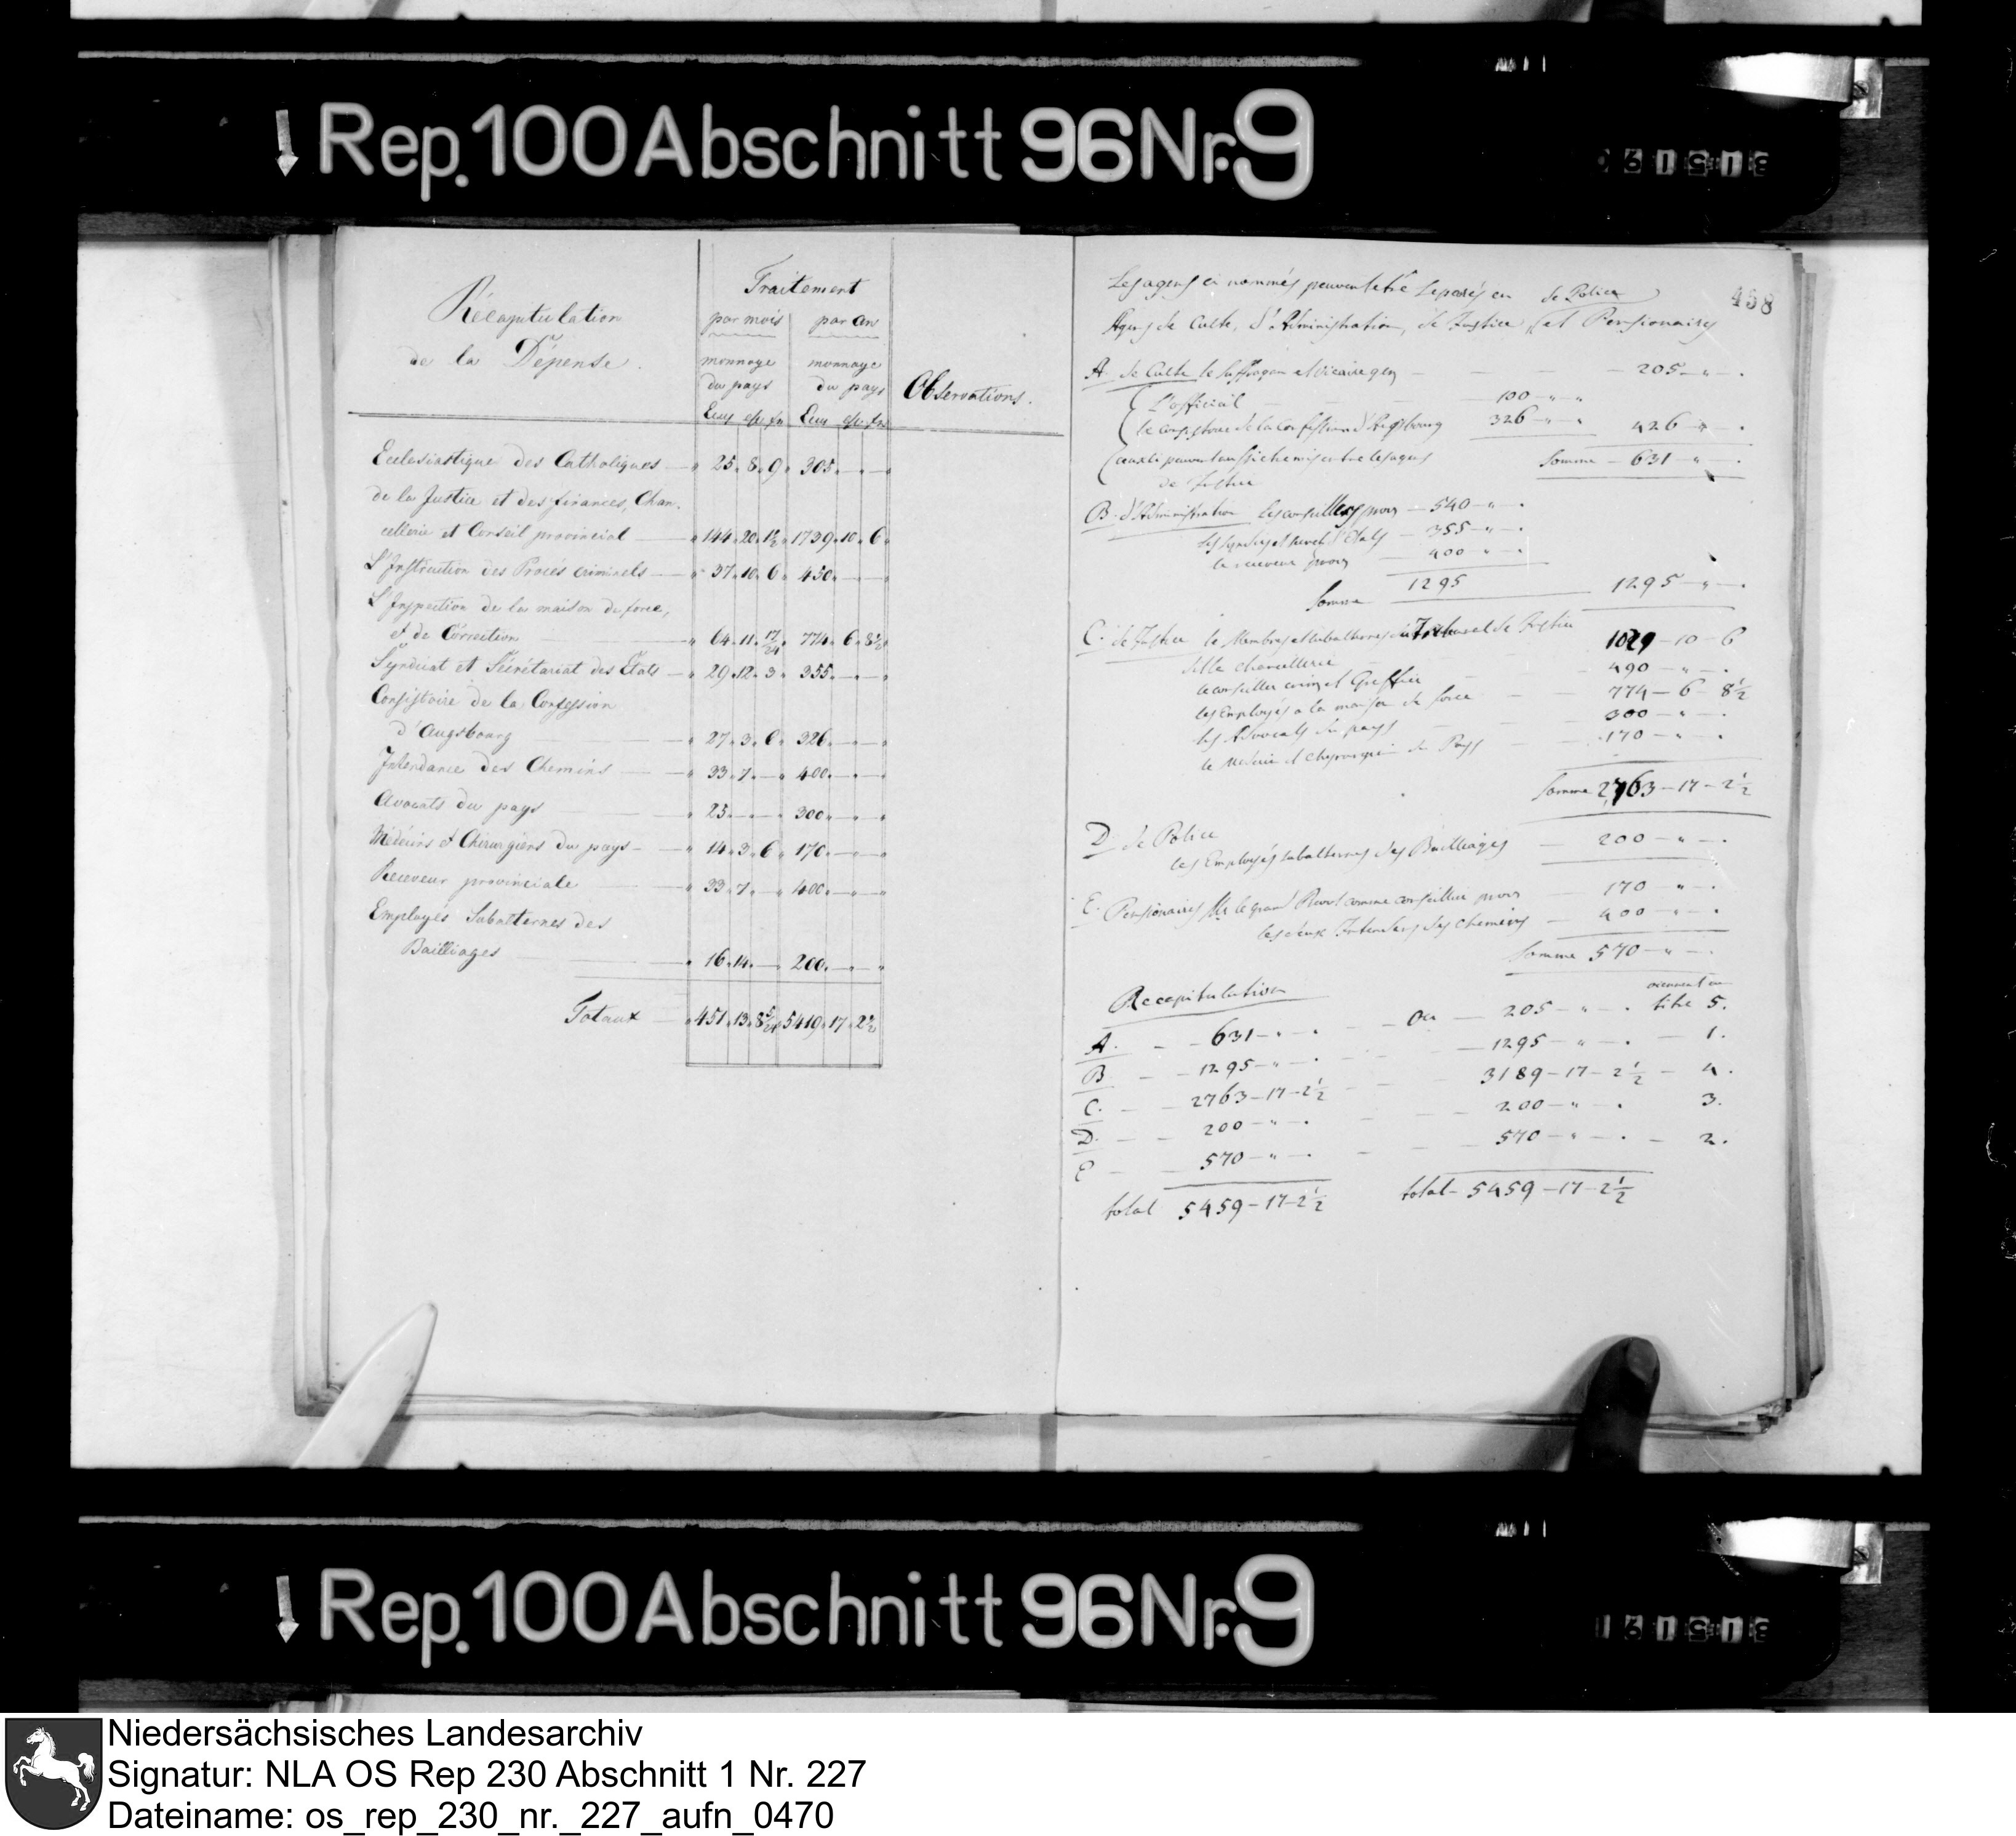 Rep. 100 Abschnitt 96 Nr. 9
Récapitulation
de la Dépense.
Traitement
par mois par an
monnaye monnaye
du pays du pays
Observations.
Ecclesiastique des Catholiques — " 25. 8. 9. 305. — —
de la Justice et des finances, Chan-
cellerie et Conseil provincial — 144. 20. 1739. 10. 6.
L'Instruction des Procès criminels — 37. 10. 6. 450. — —
L'Inspection de la maison de force,
et de Correction — 64. 11. 17/24 774. 6. 8½
Syndicat et Sécrétariat des Etats — 29. 12. 3. 355. — —
Consistoire de la Confession
d'Augsbourg — 27. 3. 6. 326. — —
Intendance des Chemins — 33. 7. — 400. — —
Avocats du pays — 25. — — 300. — —
Médécins et Chirurgiens du pays — 14. 3. 6. 170. — —
Receveur provinciale — 33. 7. — 400. — —
Employés Subalternes des
Bailliages — 16. 14. — 200. — —
Totaux — 451. 13. 8 5/24 5419. 17. 2½
458
Les agens ci nommés peuvent etre separés en de Police
Agens de Culte, d'Administration, de Justice, et Pensionaires
A. de Culte le Suffragan et Vicaire gen — 205 — " — .
L'official — 100 — " — "
le consistoire de la Confession d'Augsbourg 326 — " — . 426 — " — .
Somme — 631 — " — .
de Justice
B. d'Administration Les conseillers prov — 540 — " — .
les syndics et secret d'Etats — 355 — " — .
le receveur prov — 400 — " — .
Somme 1295 1295 — " — .
C. de Justice le Membres et subalternes du Tribunal de Justice 1029 — 10 — 6
de la chancellerie
le conseiller crim et Greffier 490 — " — .
les Employés a la maison de force 774 — 6 — 8½
les Advocats du pays 300 — " — .
le Medecin et chyrurgien du Pays 170 — " — .
Somme 2763 — 17 — 2½
D. de Police
les Employés subalternes des Bailliages — 200 — " — .
E. Pensionaires Mr le grand Prevot comme conseiller prov 170 — " — .
les deux Intendans des chemins — 400 — " — .
Somme 570 — " — .
Recapitulation
A. — 631 — " — . — Ou — 205 — " — . titre 5.
B. — 1295 — " — . — 1295 — " — . — 1.
C. — 2763 — 17 — 2½ — 3189 — 17 — 2½ — 4.
D. — 200 — " — . — 200 — " — . 3.
E — 570 — " — . — 570 — " — . — 2.
total 5459 — 17 — 2½ total — 5459 — 17 — 2½
Rep. 100 Abschnitt 96 Nr. 9
Niedersächsisches Landesarchiv
Signatur: NLA OS Rep 230 Abschnitt 1 Nr. 227
Dateiname: os_rep_230_nr._227_aufn_0470